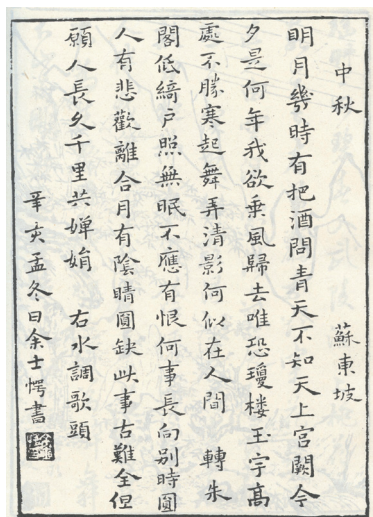 中秋 蘇東坡
明月幾時有把酒問青天不知天上宮闕今
夕是何年我欲乘風歸去唯恐瓊樓玉宇高
處不勝寒起舞弄清影何似在人間 轉朱
閣低綺戶照無眠不應有恨何事長向別時圓
人有悲歡離合月有陰晴圓缺此事古難全但
願人長久千里共嬋娟 右水調歌頭
辛亥孟冬日余士愕書